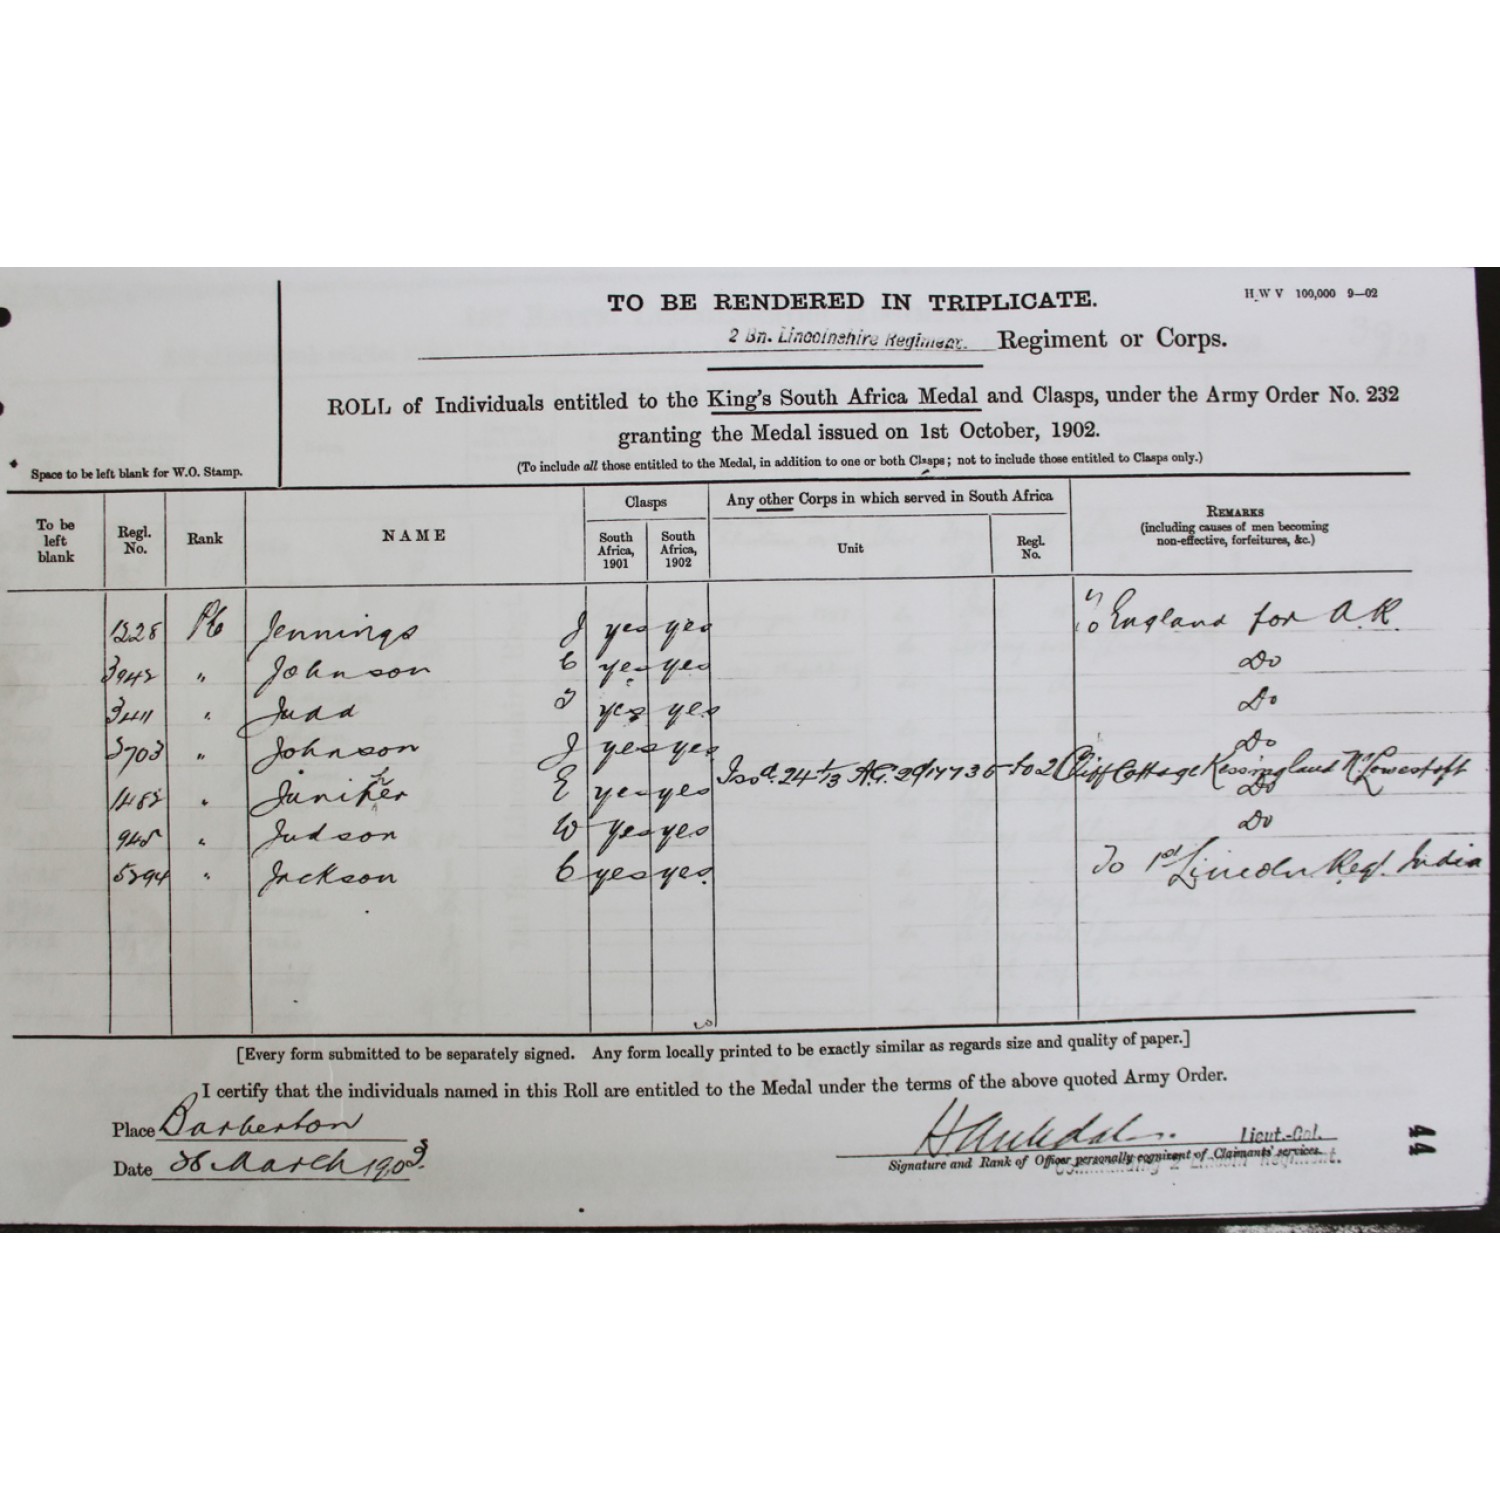 TO BE RENDERED IN TRIPLICATE.
H W V 100,000 9—02
2 Bn. Lincolnshire Regiment. Regiment or Corps.
ROLL of Individuals entitled to the King's South Africa Medal and Clasps, under the Army Order No. 232
granting the Medal issued on 1st October, 1902.
(To include all those entitled to the Medal, in addition to one or both Clasps; not to include those entitled to Clasps only.)
Space to be left blank for W.O. Stamp.
To be left blank Regl. No. Rank NAME Clasps Any other Corps in which served in South Africa REMARKS
(including causes of men becoming non-effective, forfeitures, &c.)
South Africa, 1901 South Africa, 1902 Unit Regl. No.
Pte Jennings J yes yes England for A.R.
3942 " Johnson C yes yes Do
3411 " Judd yes yes Do
3703 " Johnson J yes yes Do
Issd. 24/1/13 A.G. 2/ to 2 Cliff Cottage Kessingland Nr Lowestoft
1482 " Juniper E yes yes Do
945 " Judson W yes yes Do
5294 " Jackson C yes yes To 1st Lincoln Regt. India
[Every form submitted to be separately signed. Any form locally printed to be exactly similar as regards size and quality of paper.]
I certify that the individuals named in this Roll are entitled to the Medal under the terms of the above quoted Army Order.
Place Barberton
Lieut.-Col.
Signature and Rank of Officer personally cognizant of Claimants' services.
Date March 1903.
44